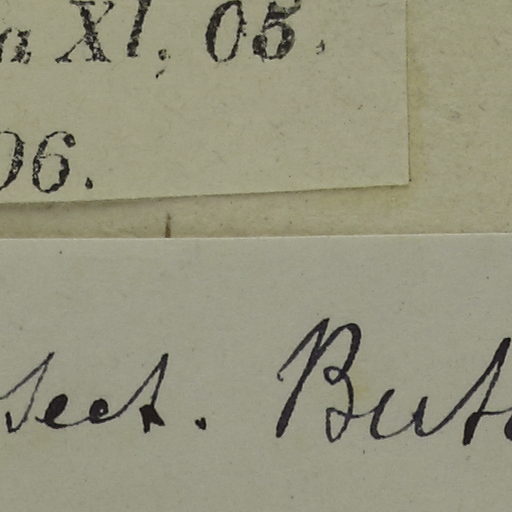 a XI, 05.
06.
sect. But